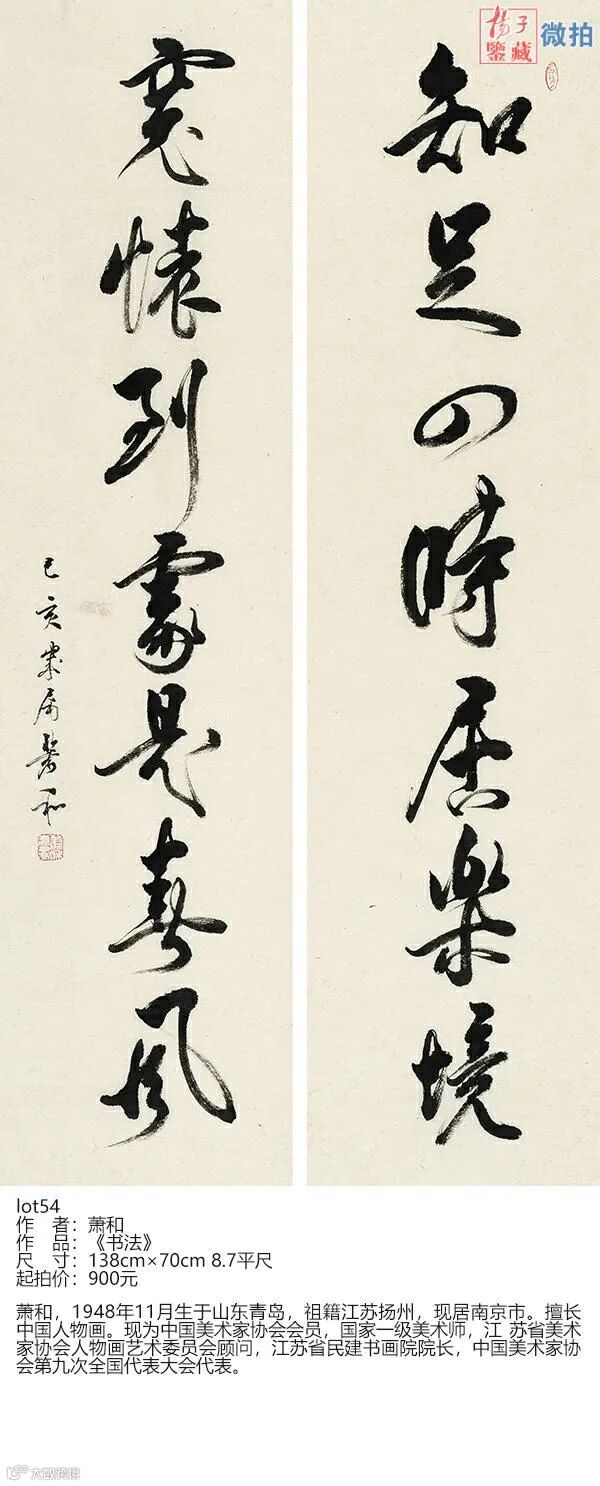 揚子
鑒藏
微拍
知足四時居樂境
虛懷到處是春風
己亥
和
lot54
作 者：萧和
作 品：《书法》
尺 寸：138cm×70cm 8.7平尺
起拍价：900元
萧和，1948年11月生于山东青岛，祖籍江苏扬州，现居南京市。擅长
中国人物画。现为中国美术家协会会员，国家一级美术师，江 苏省美术
家协会人物画艺术委员会顾问，江苏省民建书画院院长，中国美术家协
会第九次全国代表大会代表。
大数跨境